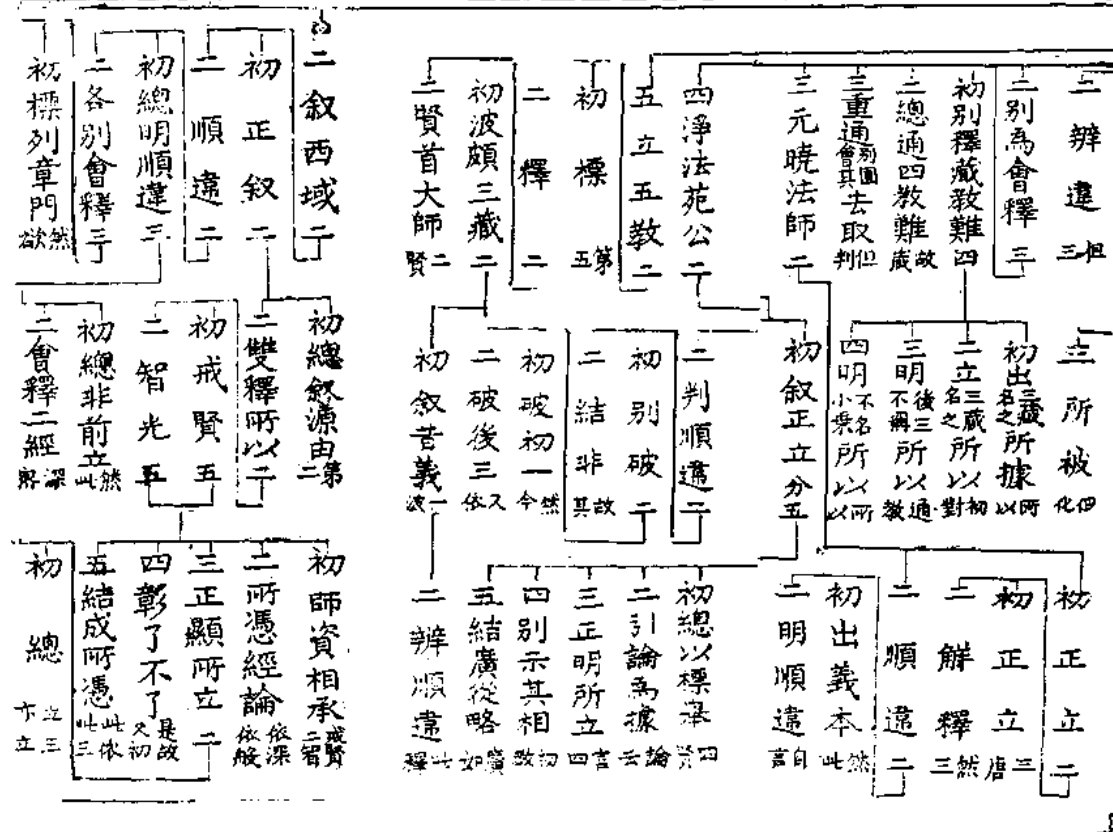 二辨違三但
二別為會釋三
初別釋藏教難四
二總通四教難故藏
三重通別圓會其去取但判
三元曉法師二
四淨法苑公二
五立五教二
初標第五
二釋二
初波頗三藏二
二賢首大師二賢
二所被但化
初出三藏名之所據所以
二立三藏名之所以初對
三明後三不稱所以通教
四明不名小乘所以所以
初敘正立分五
二判順違二
初別破二
二結非故其
初破初一然今
二破後三又依
初敘昔義一波
初正立二
初正立三唐
二解釋三然
二順違二
初出義本然此
二明順違自言
初總以標舉四賢
二引論為據論云
三正明所立四言
四別示其相初教
五結廣從略廣如
二辨順違此釋
二叙西域二
初正叙二
二順違二
初總明順違三
二各別會釋三
初標列章門然欲
初總叙源由第二
二雙釋所以二
初戒賢五
二智光五
初總非前立然此
二會釋二經深
初師資相承戒賢二智
二所憑經論依深依般
三正顯所立二
四彰了不了是故又初
五結成所憑此依此三
初總立三亦立